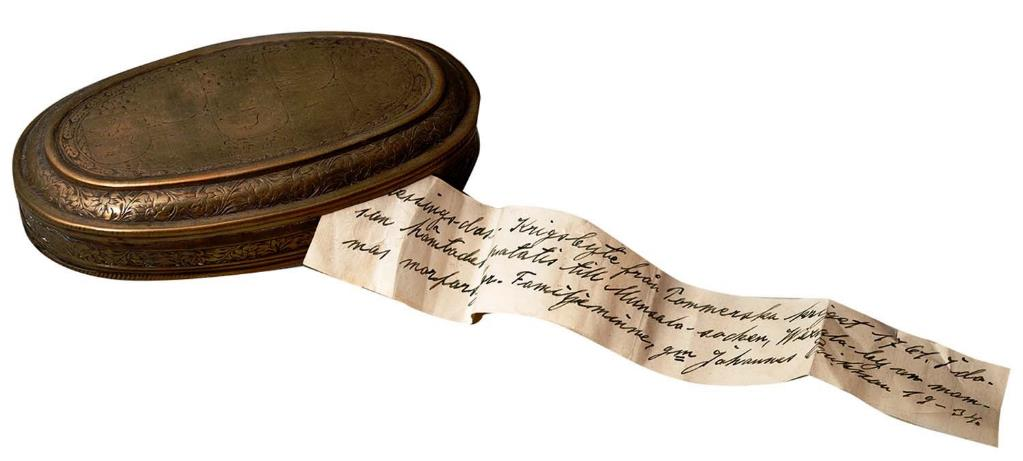 Mässings-dosa. Krigsbyte från Pommerska kriget 1761. I do-
san hämtades potatis till Munsala-socken, Wexala by av mam-
mas morfars far. Familjeminne, gm Johannes 19-34.